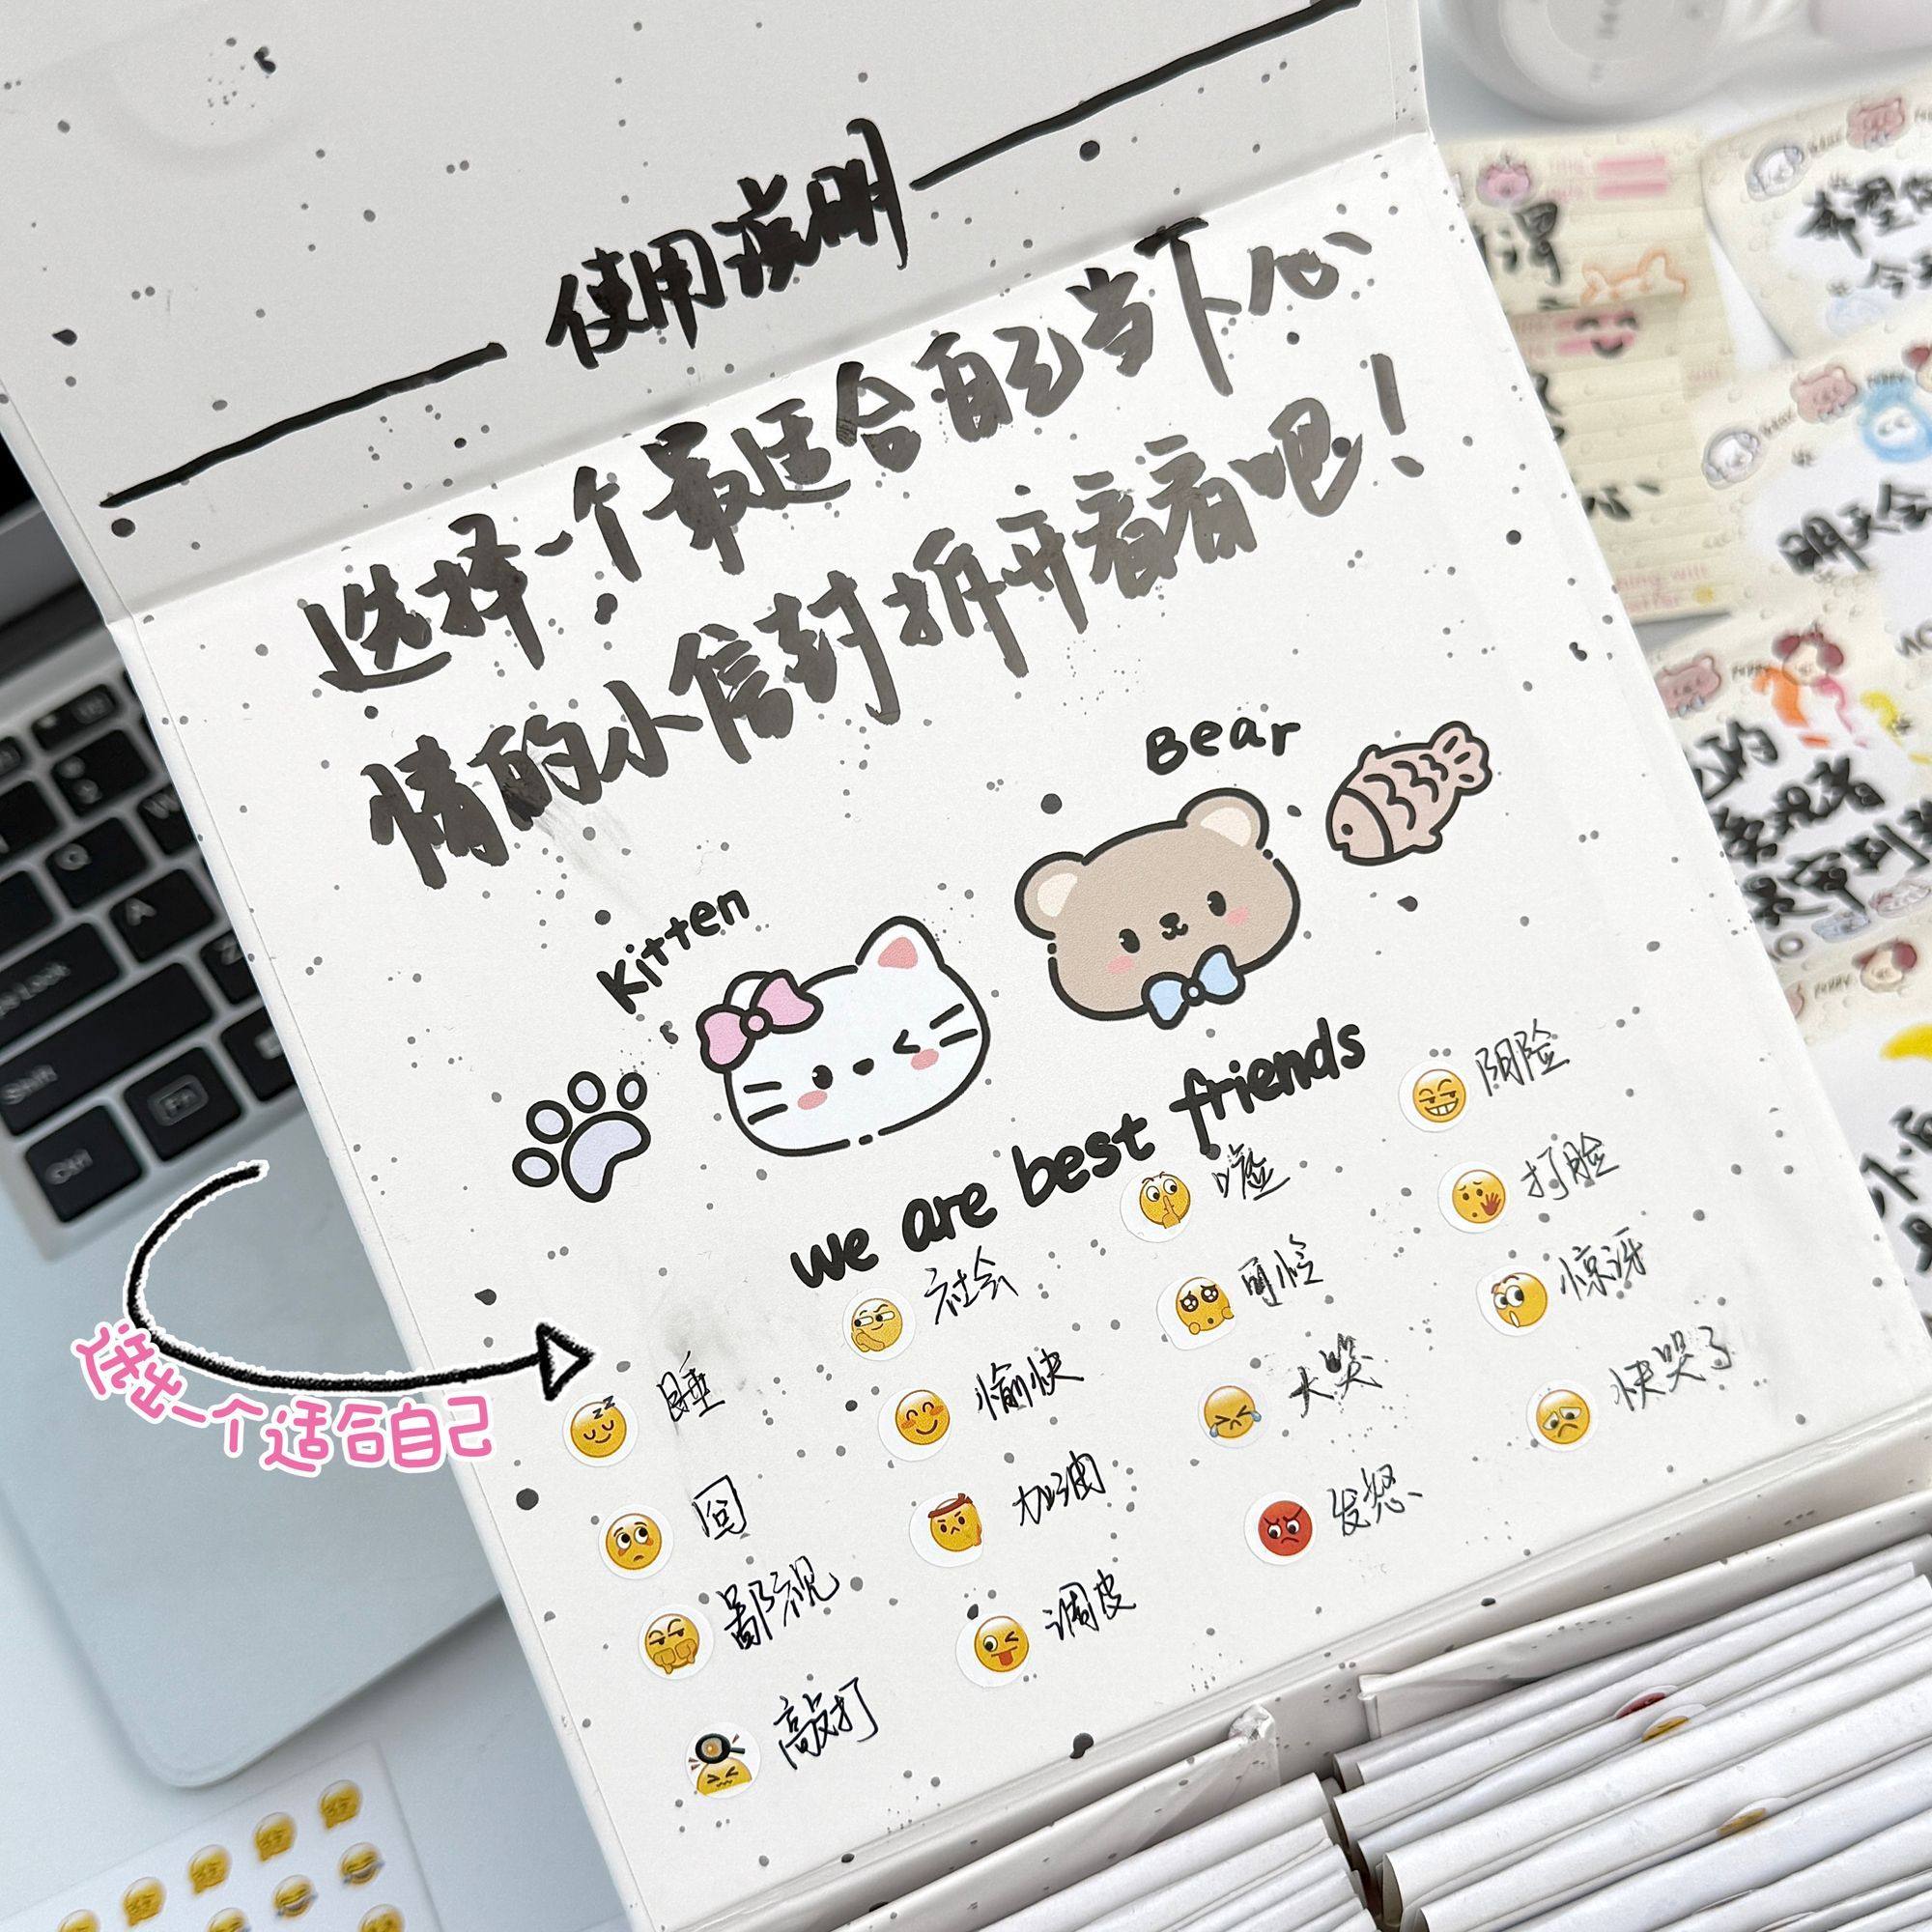 使用说明
选择一个最适合自己当下心
情的小信封拆开看看吧！
Bear
Kitten
we are best friends
选出一个适合自己
睡
囧
鄙视
敲打
社会
愉快
加油
调皮
嘘
可怜
大哭
发怒
阴险
打脸
惊讶
快哭了
希望
明天会
Shift
Fn
Ctrl
A
Q